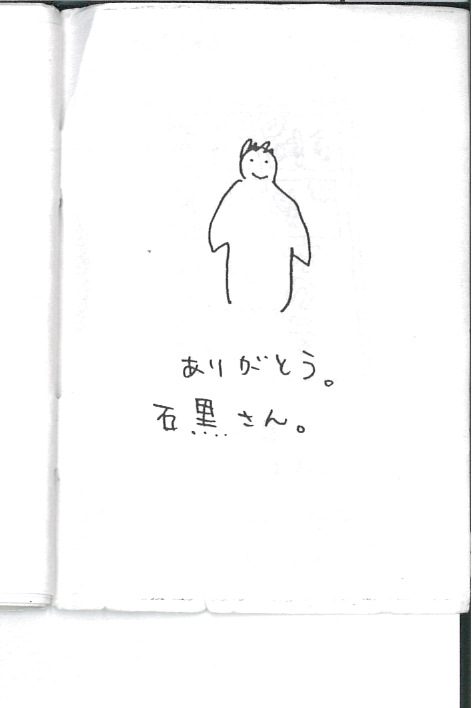 ありがとう。
石黒さん。